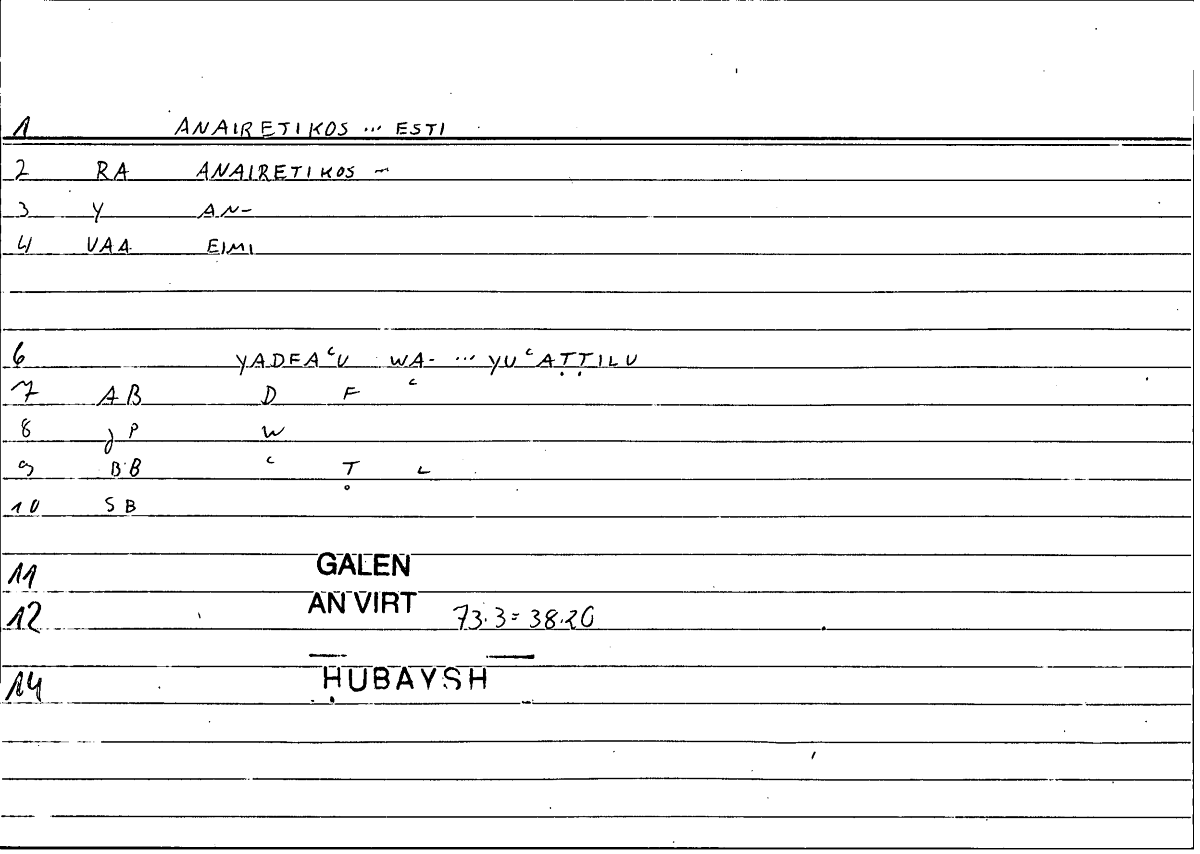 1 ANAIRETIKOS ... ESTI
2 RA ANAIRETIKOS ~
3 Y AN-
4 VAA EIMI
6 YADFAʿU WA- ... YUʿAṬṬILU
7 AB D F ʿ
8 JP W
9 BB ʿ Ṭ L
10 SB
11 GALEN
12 AN VIRT 73.3 = 38.20
14 ḤUBAYSH